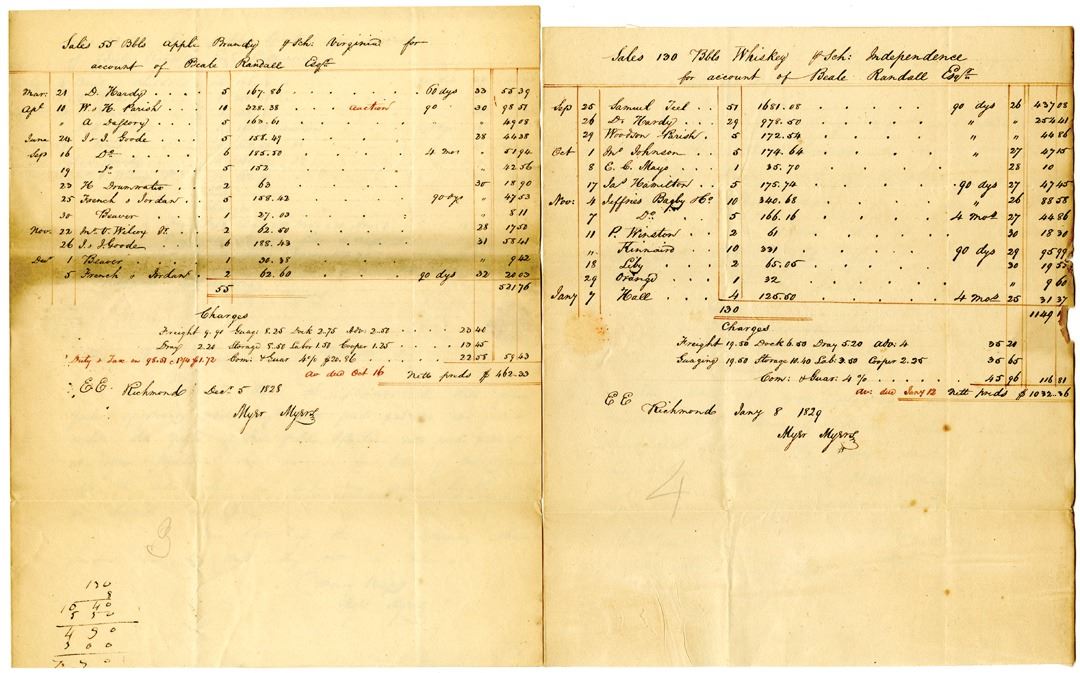 Sales 55 Bbls Apple Brandy Sch: Virginia for
account of Beale Randall Esqr.
Mar: 21 D. Hardy 5 167.86 60 dys 33 55 39
Apl 10 W & H. Parish 10 328.38 auction 90 30 98 51
" A. 5 163.61 " 49 08
June 24 J & J. Goode 5 158.49 28 44 38
Sep 16 Do 6 185.50 4 mos " 51 94
19 Do 5 152 " 42 56
23 H Drumwater 2 63 30 18 90
25 French & Jordan 5 158.42 90 dys " 47 53
30 Beaver 1 27.03 " 8 11
Nov. 22 2 62.50 28 17 50
26 J & J. Goode 6 188.43 31 58 41
Decr 1 Beaver 1 30.38 " 9 42
5 French & Jordan 2 62.60 90 dys 32 20 03
55 521 76
Charges
Freight 9.91 Guag: 8.25 Dock 2.75 Adv: 2.50 23 40
Dray 2.20 Storage 8.50 Labor 1.50 Cooper 1.25 13 45
Duty & Tax on 98.51 $1.72 Com: & Guar 4 % $20.86 22 58 59 43
Av due Oct 16 Nett prods $ 462.33
E E. Richmond Decr. 5 1828
Myer Myers
3
130
8
10 40
5 5 0
4 9 0
3 0 0
7 9 0
Sales 130 Bbls Whiskey Sch: Independence
for account of Beale Randall Esqr.
Sep 25 Samuel Teel 51 1681.08 90 dys 26 437 08
26 Dl Hardy 29 978.50 " " 254 41
29 Woodson Parish 5 172.54 " " 44 86
Oct 1 Mc Johnson 5 174.64 27 47 15
8 E. C. Mayo 1 35.70 28 10
17 Jas Hamilton 5 175.74 90 dys 27 47 45
Nov: 4 Jeffries Bagby & Co 10 340.68 " 26 88 58
7 Do 5 166.16 4 mos 27 44 86
11 P. Winston 2 61 30 18 30
" Kinnaird 10 331 90 dys 29 95 99
18 Liby 2 65.05 30 19 5
29 Orange 1 32 " 9 60
Jany 7 Hall 4 125.50 4 mos 25 31 37
130 1149 1
Charges
Freight 19.50 Dock 6.50 Dray 5.20 Adv: 4 35 20
Guaging 19.50 Storage 10.40 Lab: 3.50 Cooper 2.25 35 65
Com: & Guar: 4 % 45 96 116 81
Av: due Jany 12 Nett prods $ 1032.36
E E Richmond Jany 8 1829
Myer Myers
4